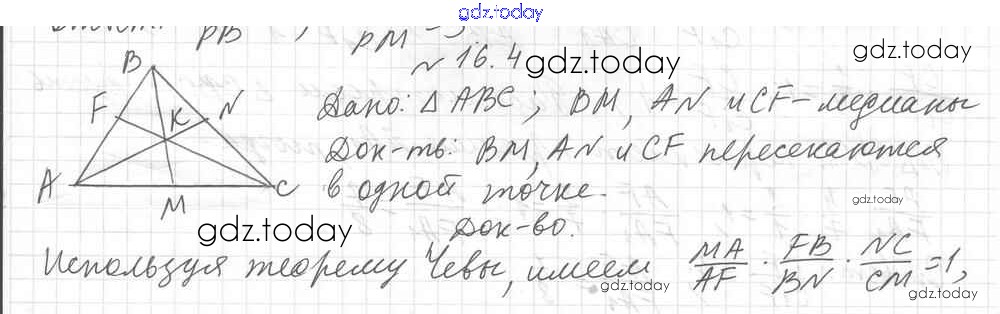 gdz.today
PB , PM = 3
№ 16.4
gdz.today
gdz.today
B
F
K
N
A
M
C
Дано: △ABC; BM, AN и CF - медианы
Док-ть: BM, AN и CF пересекаются
в одной точке.
gdz.today
gdz.today
Док-во.
Используя теорему Чевы, имеем MA/AF · FB/BN · NC/CM = 1,
gdz.today
gdz.today